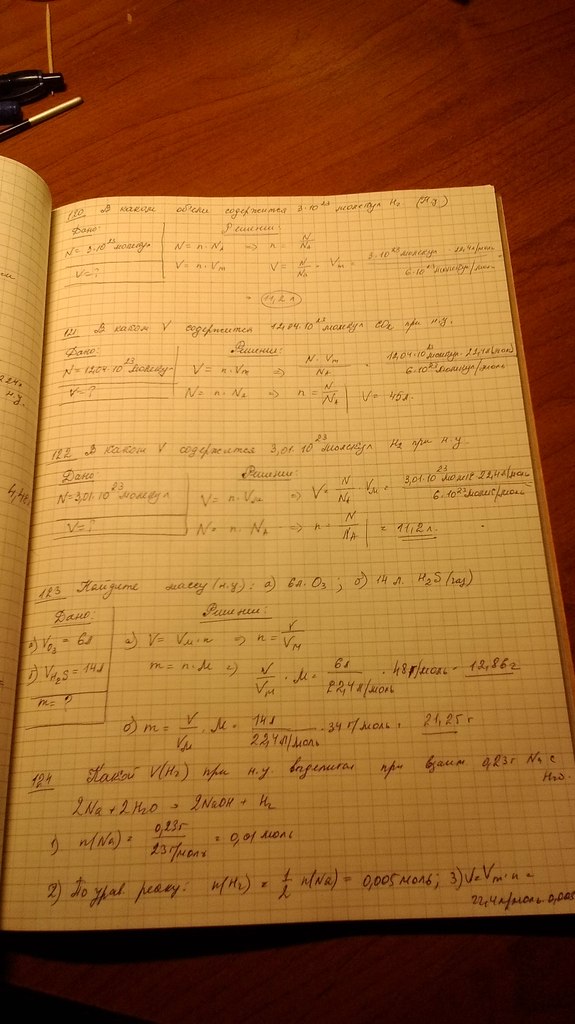 120 В каком объёме содержится 3·10²³ молекул H₂ (н.у)
Дано: Решение:
N = 3·10²³ молекул N = n·Nₐ => n = N/Nₐ
V = ? V = n·Vₘ V = N/Nₐ · Vₘ = 3·10²³ молекул · 22,4л/моль / 6·10²³ молекул/моль
= 11,2 л
121 В каком V содержится 12,04·10²³ молекул CO₂ при н.у.
Дано: Решение:
N = 12,04·10²³ молекул V = n·Vₘ => N·Vₘ/Nₐ = 12,04·10²³ молекул · 22,4л/моль / 6·10²³ молекул/моль
V = ? N = n·Nₐ => n = N/Nₐ V = 45л.
122 В каком V содержится 3,01·10²³ молекул H₂ при н.у.
Дано: Решение:
N = 3,01·10²³ молекул V = n·Vₘ => V = N/Nₐ · Vₘ = 3,01·10²³ молек 22,4л/моль / 6·10²³ молек/моль
V = ? N = n·Nₐ => n = N/Nₐ = 11,2 л.
123 Найдите массу (н.у): а) 6л. O₃; б) 14 л. H₂S (газ)
Дано: Решение:
а) V O₃ = 6л а) V = Vₘ·n => n = V/Vₘ
б) V H₂S = 14л m = n·M => V/Vₘ · M = 6л / 22,4л/моль · 48г/моль = 12,86г
m = ?
б) m = V/Vₘ · M = 14л / 22,4л/моль · 34г/моль = 21,25 г
124 Какой V(H₂) при н.у. выделится при взаим 0,23г Na с H₂O.
2Na + 2H₂O = 2NaOH + H₂
1) n(Na) = 0,23г / 23г/моль = 0,01 моль
2) По урав. реакц: n(H₂) = 1/2 n(Na) = 0,005 моль; 3) V = Vₘ·n =
22,4л/моль·0,005
4,4л
22,4л
н.у.